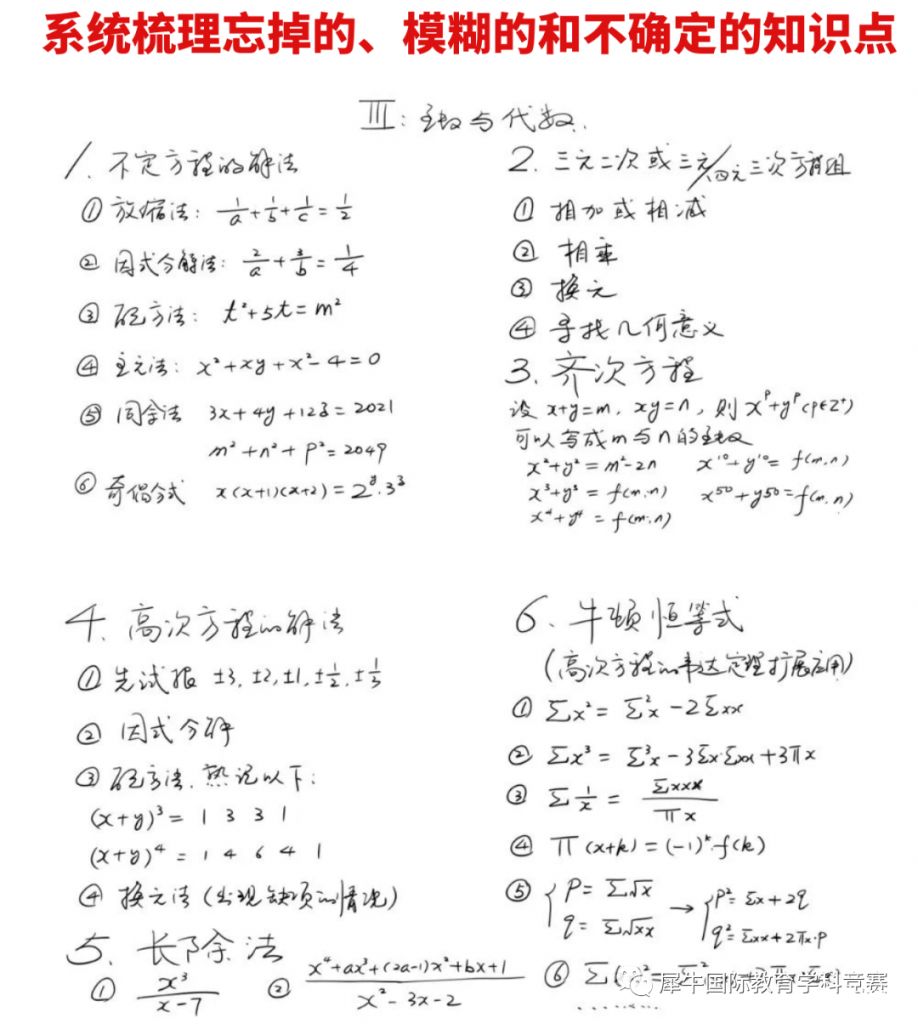 系统梳理忘掉的、模糊的和不确定的知识点
III: 函数与代数.
1. 不定方程的解法
① 放缩法: 1/a + 1/b + 1/c = 1/2
② 因式分解法: 2/a + 3/b = 1/4
③ 配方法: t²+5t=m²
④ 主元法: x²+xy+x²-4=0
⑤ 同余法 3x+4y+12z=2021
m²+n²+p²=2049
⑥ 奇偶分式 x(x+1)(x+2)=2⁸·3³
2. 三元二次或三元/四元三次方程组
① 相加或相减
② 相乘
③ 换元
④ 寻找几何意义
3. 齐次方程
设 x+y=m, xy=n, 则 x^p+y^p (p∈Z⁺)
可以写成m与n的函数
x²+y²=m²-2n x¹⁰+y¹⁰=f(m,n)
x³+y³=f(m,n) x⁵⁰+y⁵⁰=f(m,n)
x⁴+y⁴=f(m,n)
4. 高次方程的解法
① 先试根 ±3, ±2, ±1, ±1/2, ±1/3
② 因式分解
③ 配方法, 熟记以下:
(x+y)³= 1 3 3 1
(x+y)⁴= 1 4 6 4 1
④ 换元法 (出现缺项的情况)
5. 长除法
① x³/(x-7) ② (x⁴+ax³+(2a-1)x²+bx+1)/(x²-3x-2)
6. 牛顿恒等式
(高次方程的韦达定理扩展应用)
① Σx²=Σ²x-2Σxx
② Σx³=Σ³x-3Σx·Σxx+3πx
③ Σ1/x = Σxxx/πx
④ π(x+k)=(-1)^k·f(k)
⑤ { p=Σ√x q=Σ√xx → { p²=Σx+2q q²=Σxx+2πx·p
⑥ Σ
犀牛国际教育学科竞赛